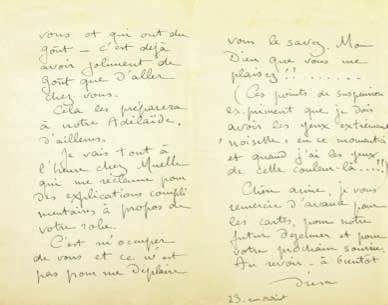 vous et qui ont du
goût – c'est déjà
avoir joliment de
goût que d'aller
chez vous.
Cela les préparera
à notre Adélaïde,
d'ailleurs.
Je vais tout à
l'heure chez Muelle
qui me réclame pour
des explications compli
mentaires à propos de
votre robe.
C'est m'occuper
de vous et ce n'est
pas pour me déplaire
vous le savez. Mon
Dieu que vous me
plaisez !!.......
(Ces points de suspension
expriment que je dois
avoir les yeux "extrêmement
noisette" en ce moment-ci
et quand j'ai les yeux
de cette couleur-là...!!)
Chère amie, je vous
remercie d'avance pour
les cartes, pour notre
futur déjeuner et pour
votre prochain sourire.
Au revoir - à bientôt
23 août